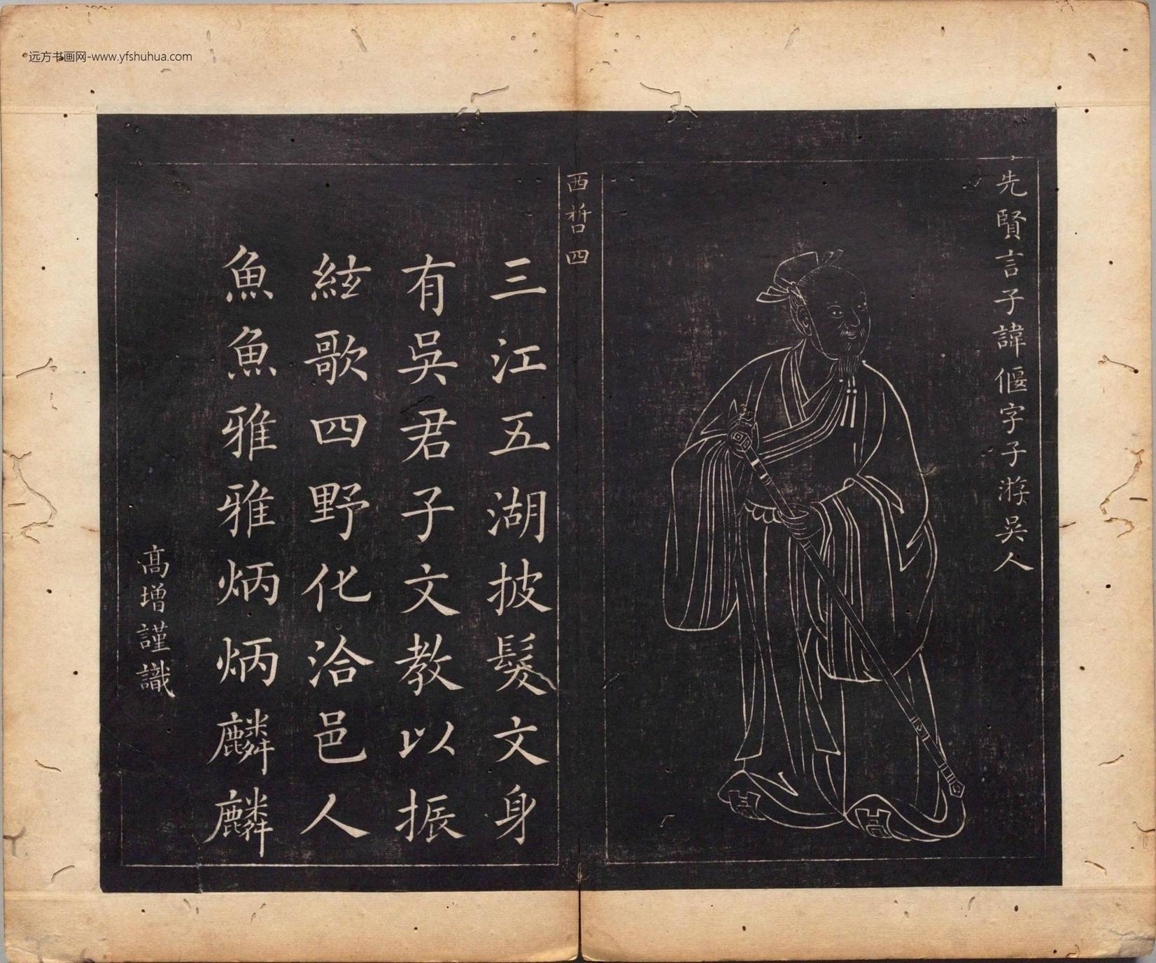 远方书画网-www.yfshuhua.com
先賢言子諱偃字子游吳人
西哲四
三江五湖披髮文身
有吳君子文教以振
絃歌四野化洽邑人
魚魚雅雅炳炳麟麟
高增謹識